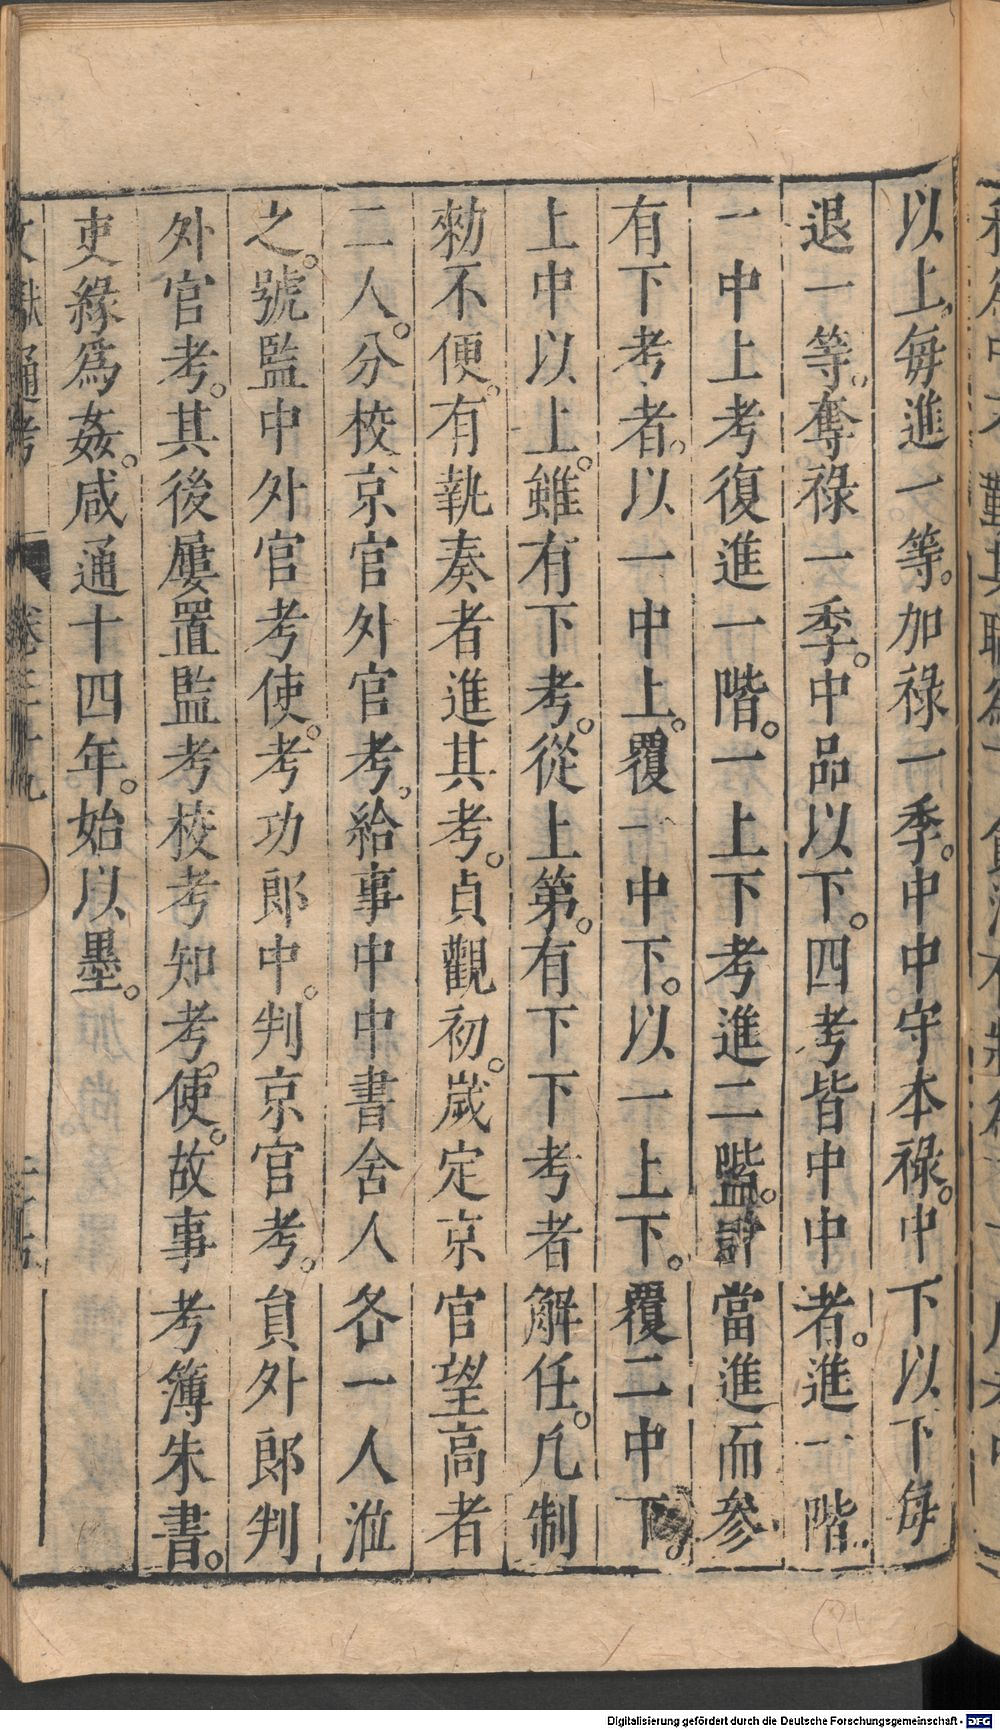 以上。每進一等。加祿一季。中中守本祿。中下以下每
退一等。奪祿一季。中品以下。四考皆中中者。進一階。
一中上考復進一階。一上下考進二階。計當進而參
有下考者。以一中上。覆一中下。以一上下。覆二中下。
上中以上。雖有下考。從上第。有下下考者解任。凡制
勑不便。有執奏者進其考。貞觀初。歲定京官望高者
二人。分校京官外官考。給事中中書舍人各一人涖
之。號監中外官考使。考功郎中。判京官考。員外郎判
外官考。其後屢置監考校考知考。使。故事考簿朱書。
吏緣爲姦。咸通十四年。始以墨。
文獻通考 卷三十九
Digitalisierung gefördert durch die Deutsche Forschungsgemeinschaft - DFG